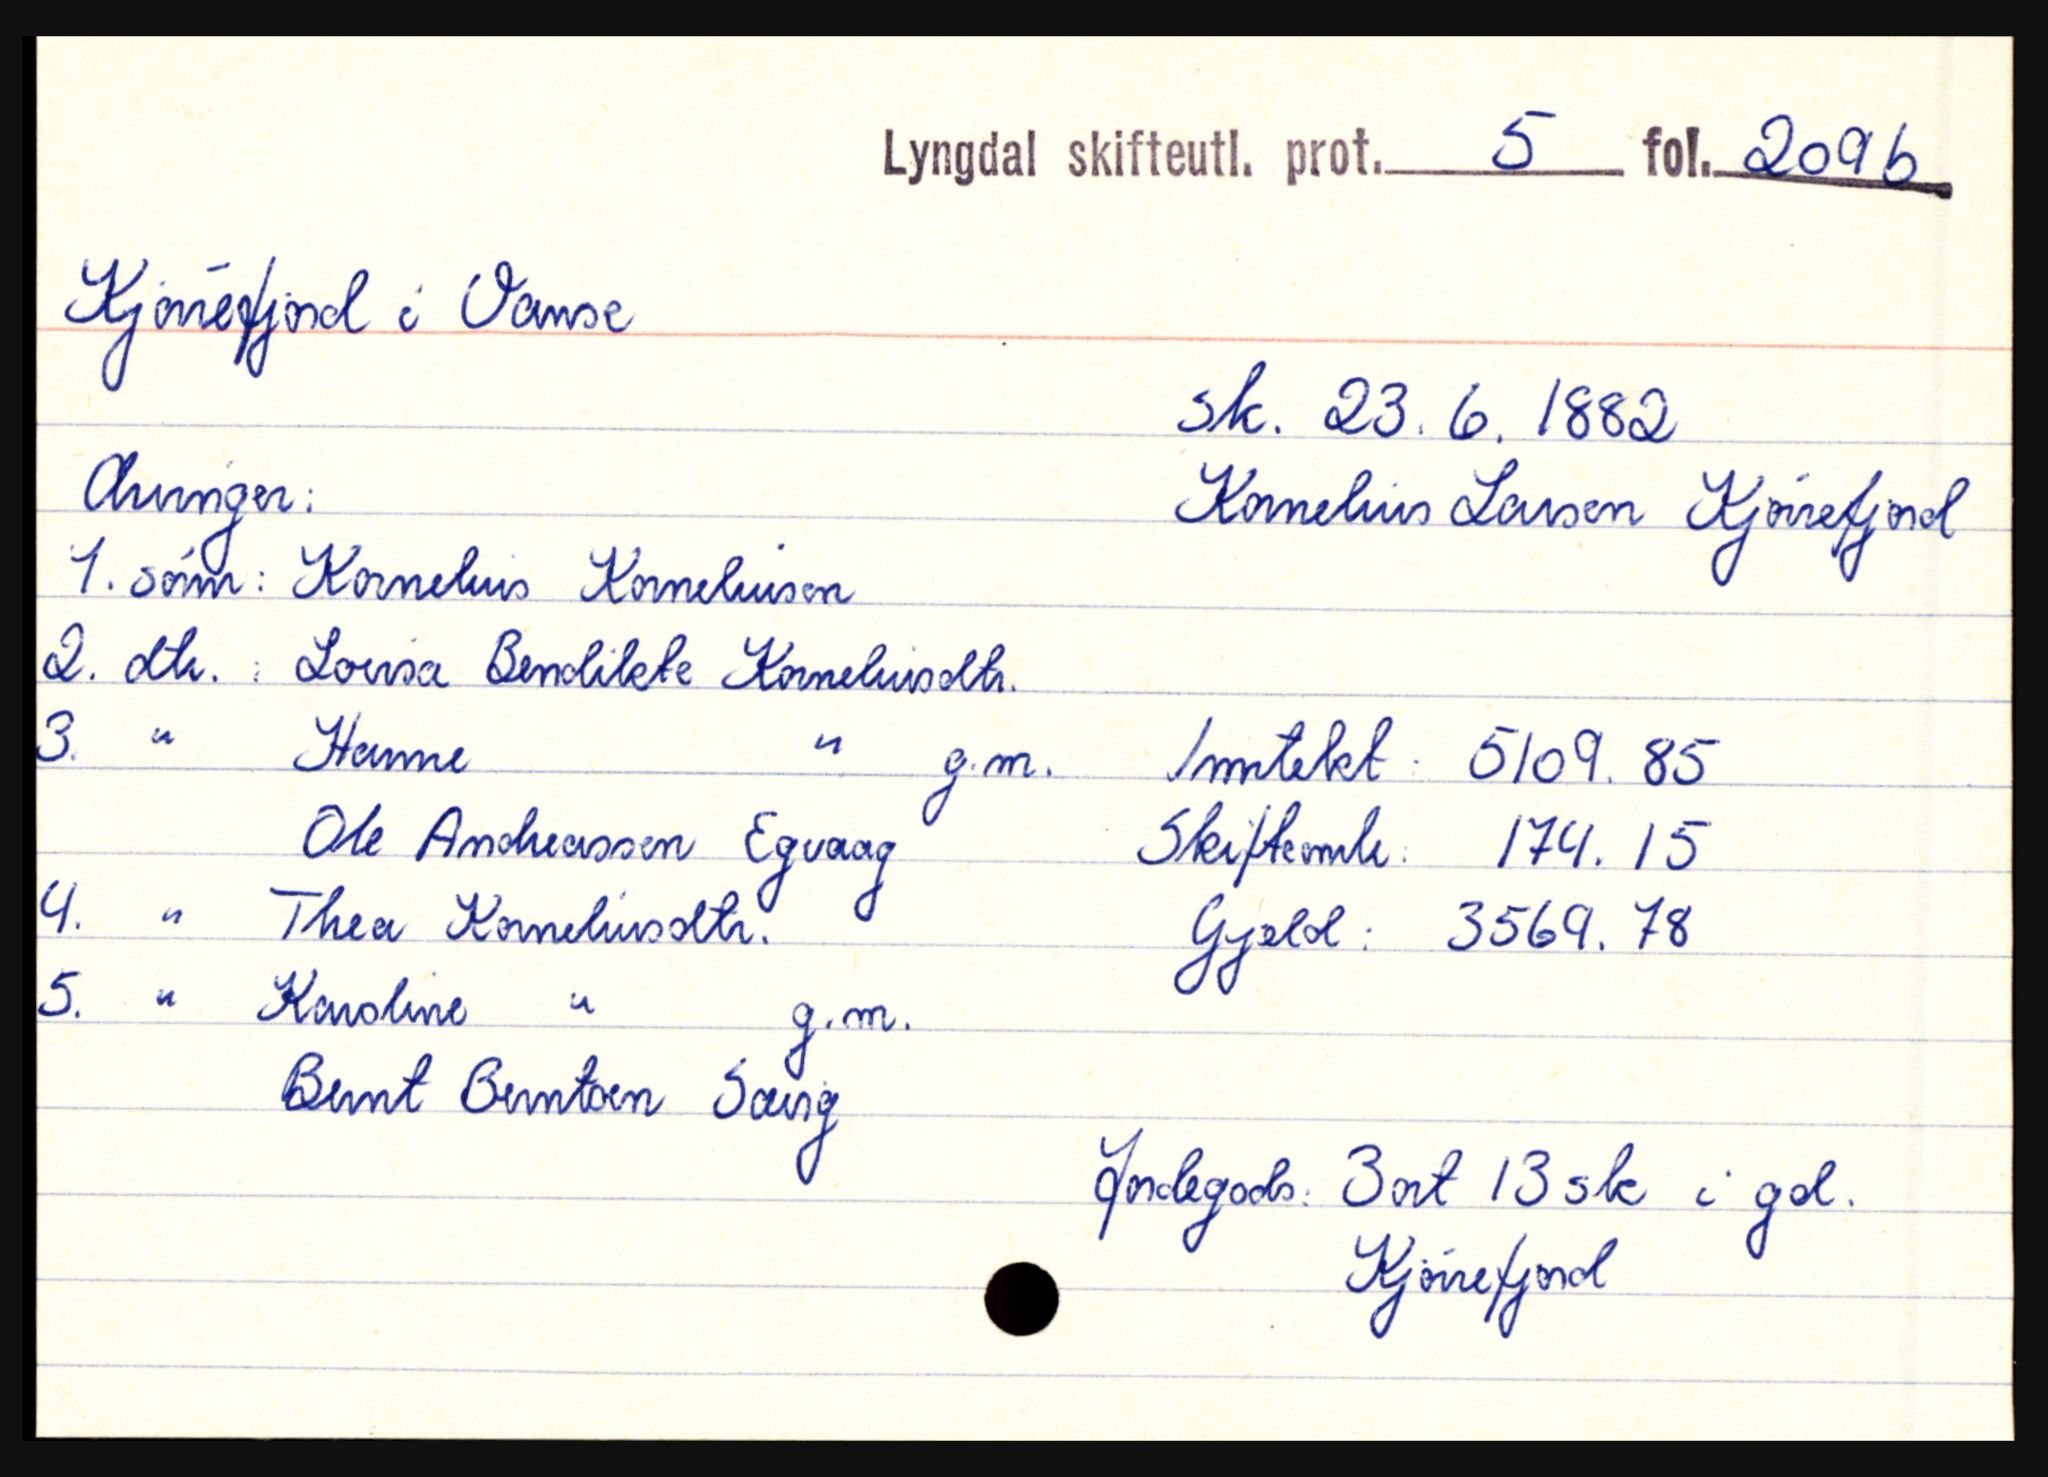 Lyngdal skifteutl. prot. 5 fol. 209b
Kjørrefjord i Vanse
sk. 23. 6. 1882
Kornelius Larsen Kjørrefjord
Arvinger:
1. sønn: Kornelius Korneliusen
2. dtr. : Lovisa Bendikte Korneliusdtr.
3. " Hanne " g.m.
Ole Andreassen Egvaag
4. " Thea Korneliusdtr.
5. " Karoline " g.m.
Bernt Berntsen Sævig
Inntekt : 5109. 85
Skifteomk: 174. 15
Gjeld : 3569. 78
Jordegods: 3 ort 13 sk i gd.
Kjørrefjord